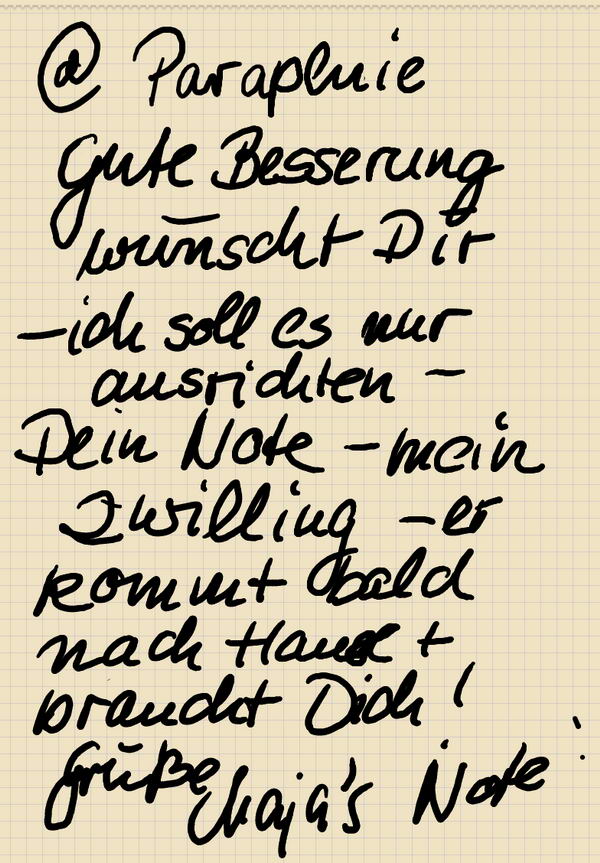 @ Parapluie
Gute Besserung
wünscht Dir
- ich soll es nur
ausrichten -
Dein Note - mein
Zwilling - er
kommt bald
nach Hause +
braucht Dich!
Grüße Maja's Note!